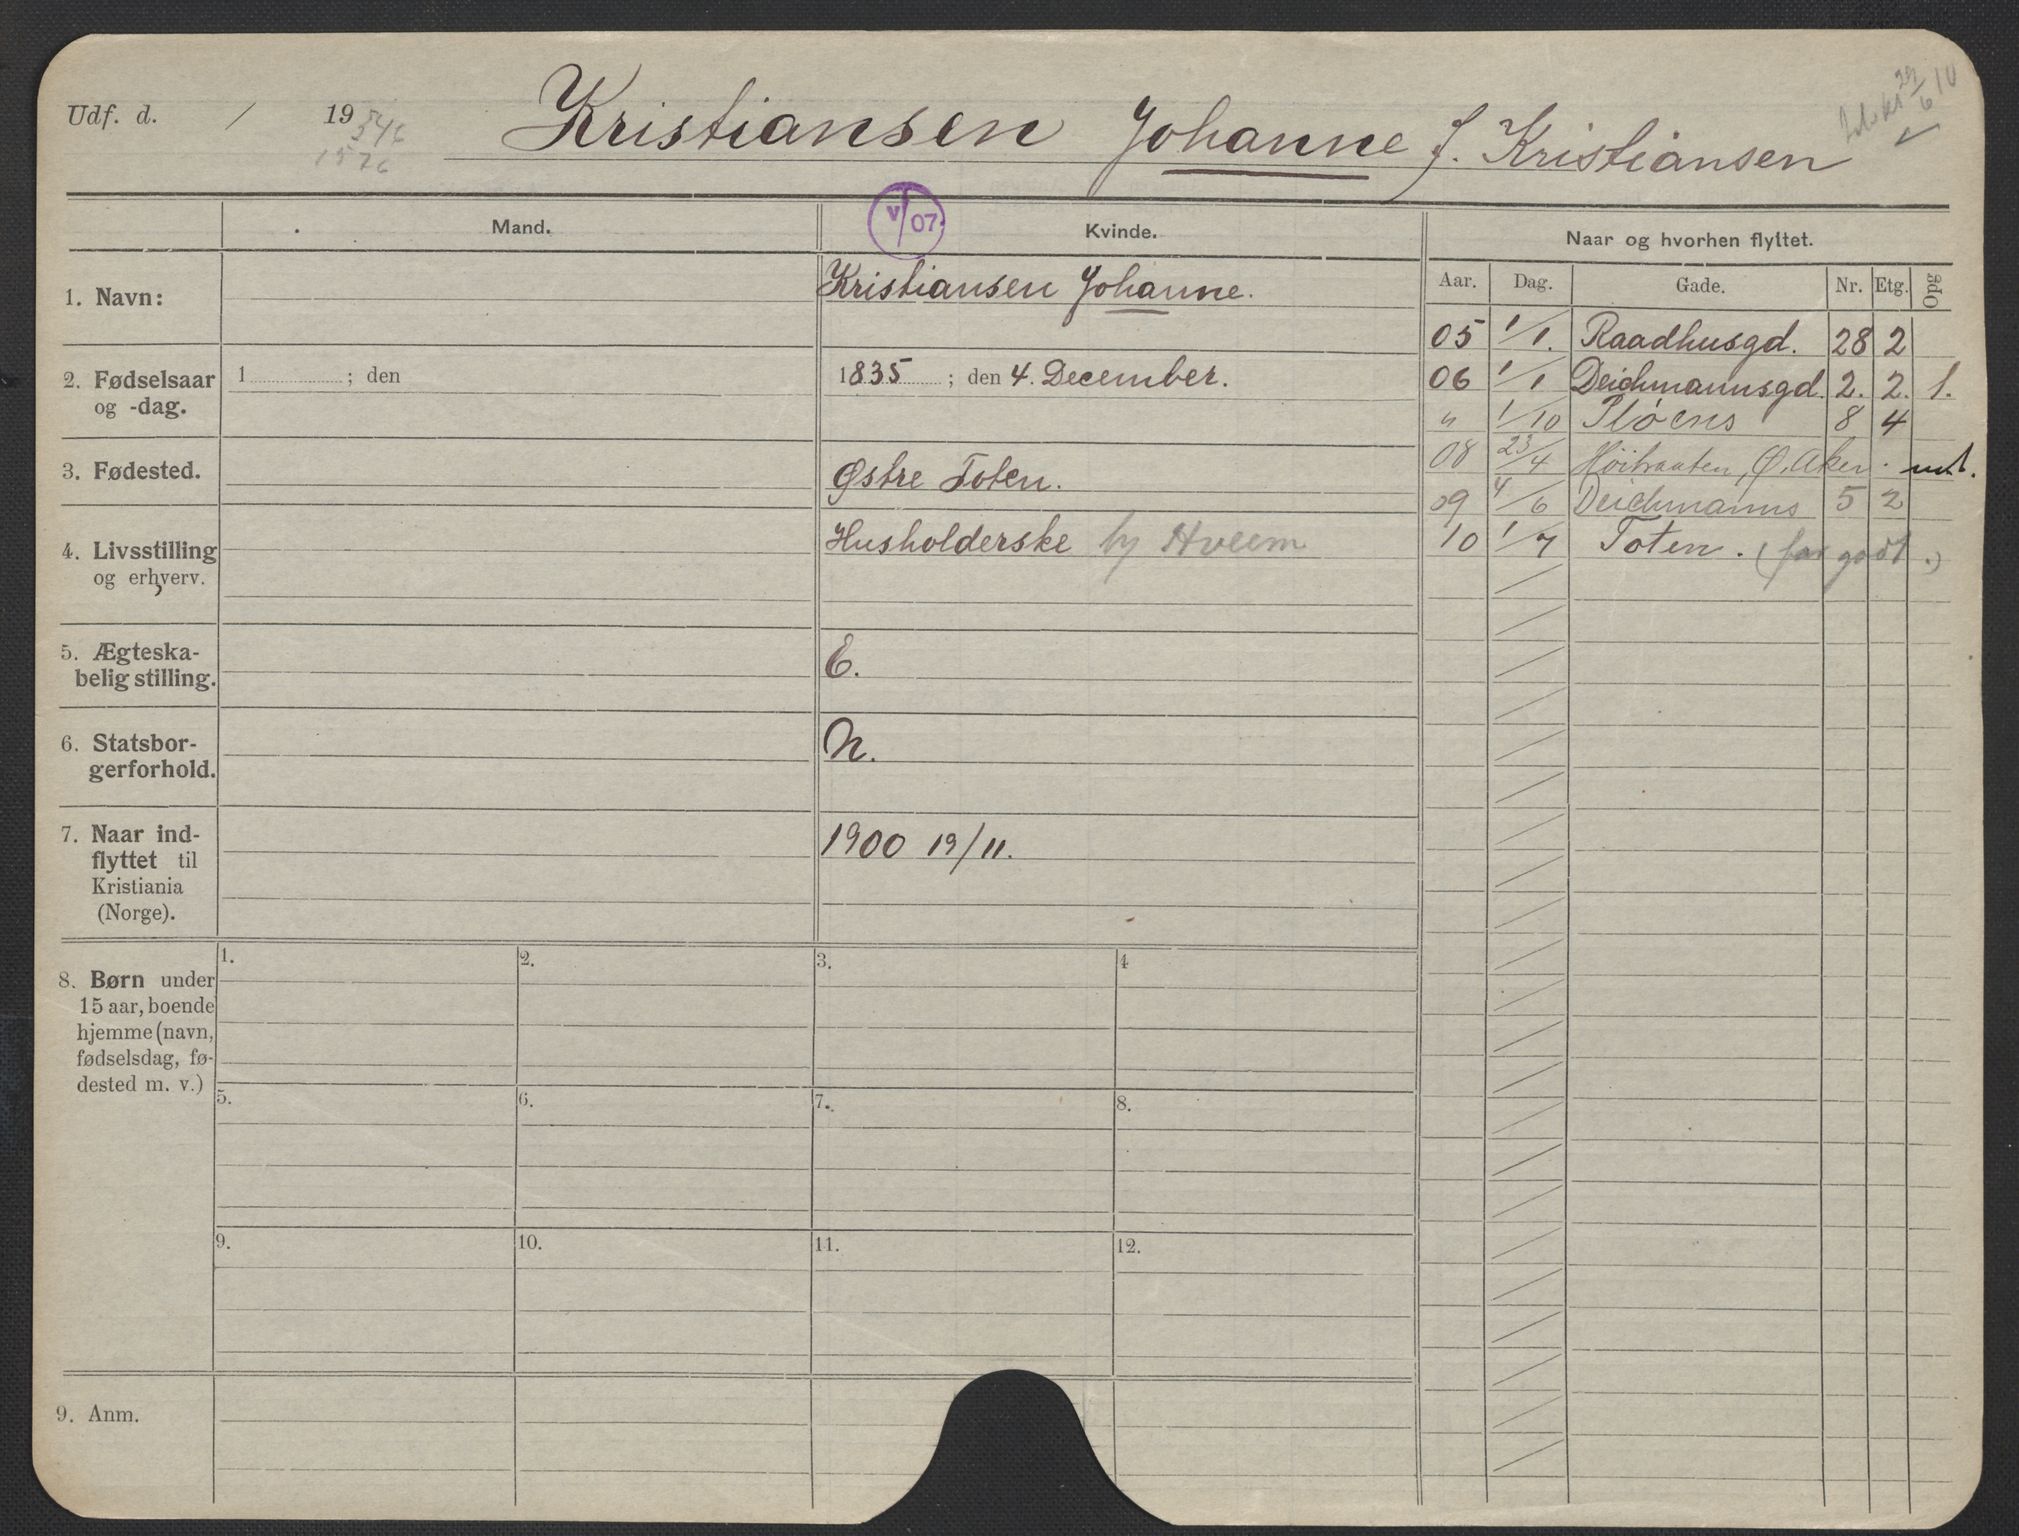 Udf. d. / 19
Kristiansen Johanne J. Kristiansen
29/6 10
546
1576
Mand.
V/07.
Kvinde.
Naar og hvorhen flyttet.
Aar. Dag. Gade. Nr. Etg. Opg
1. Navn:
Kristiansen Johanne.
2. Fødselsaar
og -dag.
1 ; den
1835 ; den 4. December.
3. Fødested.
Østre Toten.
4. Livsstilling
og erhverv.
Husholderske hj Hveem
5. Ægteska-
belig stilling.
E.
6. Statsbor-
gerforhold.
N.
7. Naar ind-
flyttet til
Kristiania
(Norge).
1900 19/11.
05 1/1. Raadhusgd. 28 2
06 1/1 Deichmannsgd. 2. 2. 1.
" 1/10 Pløens 8 4
08 23/4 Høibraaten, Ø. Aker. undt.
09 4/6 Deichmanns 5 2
10 1/7 Toten. (for godt.)
8. Børn under
15 aar, boende
hjemme (navn,
fødselsdag, fø-
dested m. v.)
1. 2. 3. 4
5. 6. 7. 8.
9. 10. 11. 12.
9. Anm.